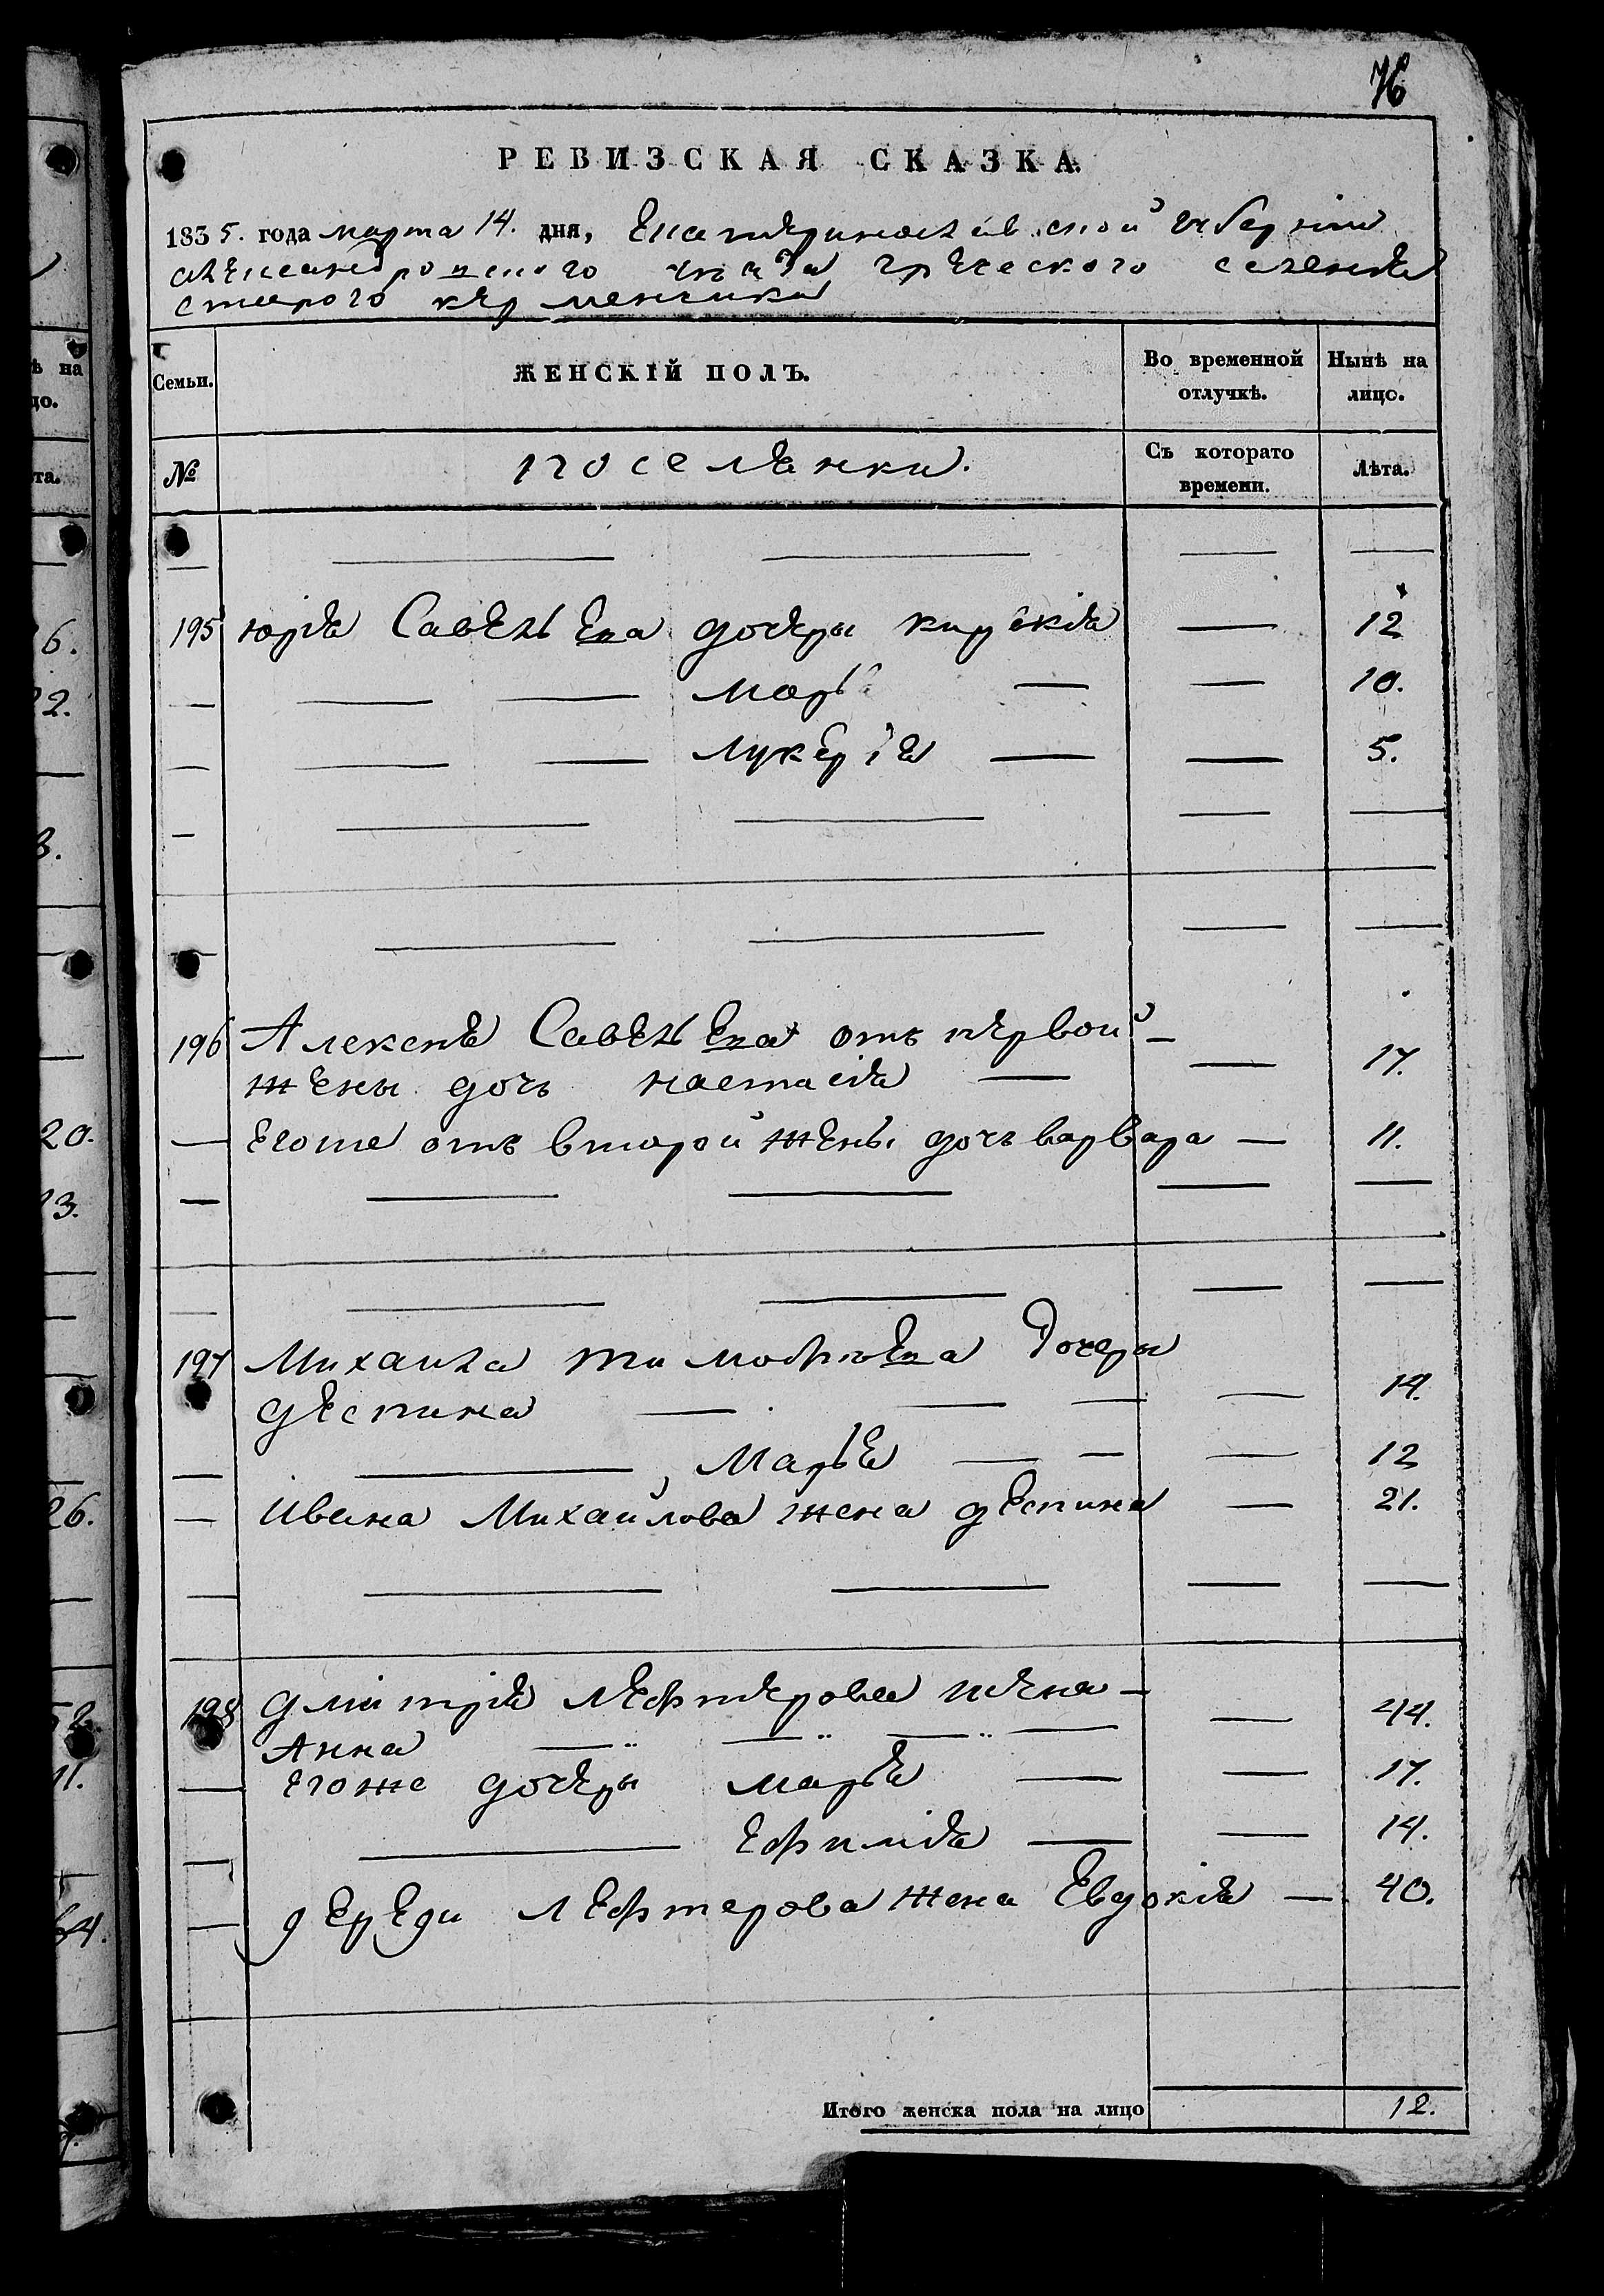 76
РЕВИЗСКАЯ СКАЗКА.
1835. года марта 14. дня, Екатеринославской губерніи
александровского уезда греческого селенія
старого керменчика
Семьи. ЖЕНСКІЙ ПОЛЪ. Во временной отлучкѣ. Нынѣ на лицо.
№ поселянки. Съ которато времени. Лѣта.
195 юрія Савельева дочеры кирекія — 12
— — — марья — — 10.
— — — лукерія — — 5.
196 Алексея Савельева отъ первой —
жены дочь настасія — — 17.
— егоже отъ второй жены дочь варвара — 11.
197 Михаила тимофѣева дочеры
деспина — — — — 14.
— — марья — — — 12
— ивана Михайлова жена деспина — 21.
198 дмитрія лефтерова жена — — 44.
Анна — — — —
— егоже дочеры марья — — 17.
— — ефимія — — 14.
— дереди лефтерова жена Евдокія — 40.
Итого женска пола на лицо 12.
ѣ на
цо.
та.
6.
2.
3.
20.
13.
26.
11.
64.